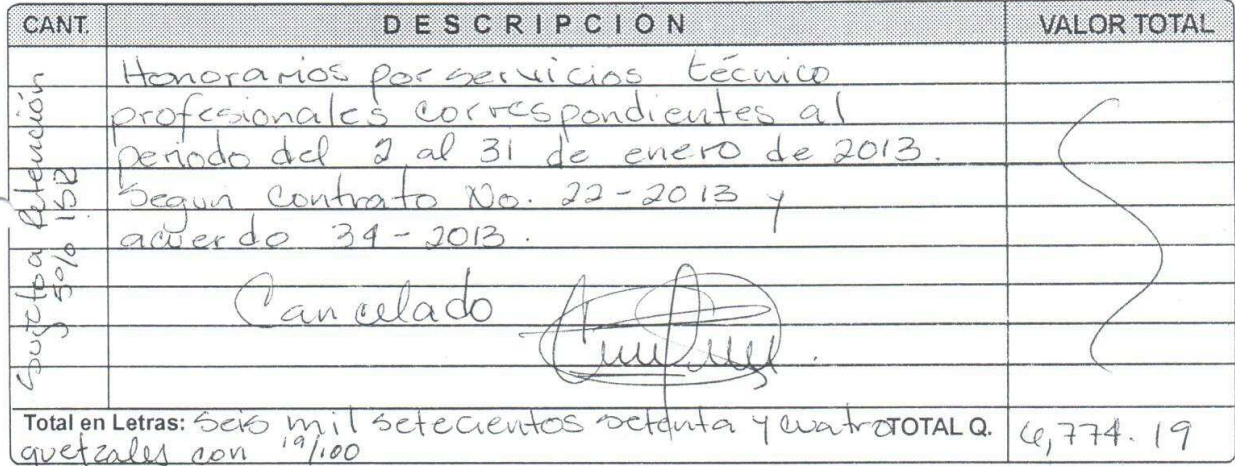 CANT. DESCRIPCION VALOR TOTAL
Sugeto a Retención
5% ISR
Honorarios por servicios técnico
profesionales correspondientes al
periodo del 2 al 31 de enero de 2013.
Segun Contrato No. 22-2013 y
acuerdo 34-2013.
Cancelado
Total en Letras: Seis mil setecientos setenta y cuatro TOTAL Q. 6,774.19
quetzales con 19/100